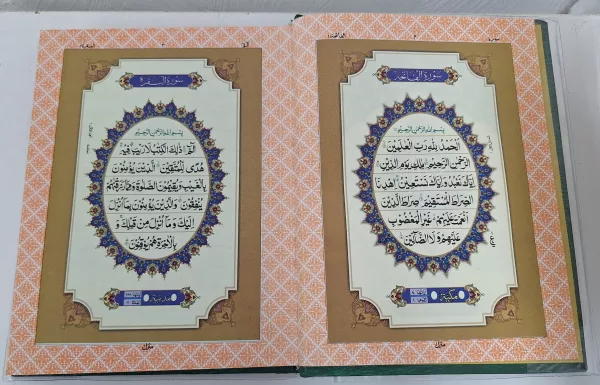 سورة الفاتحة
بسم الله الرحمن الرحيم
الحمد لله رب العلمين
الرحمن الرحيم ملك يوم الدين
اياك نعبد واياك نستعين اهدنا
الصراط المستقيم صراط الذين
انعمت عليهم غير المغضوب
عليهم ولا الضالين
مكية
منزل
سورة البقرة
بسم الله الرحمن الرحيم
الم ذلك الكتب لا ريب فيه
هدى للمتقين الذين يؤمنون
بالغيب ويقيمون الصلوة ومما رزقنهم
ينفقون والذين يؤمنون بما انزل
اليك وما انزل من قبلك و
بالاخرة هم يوقنون
مدنية
منزل